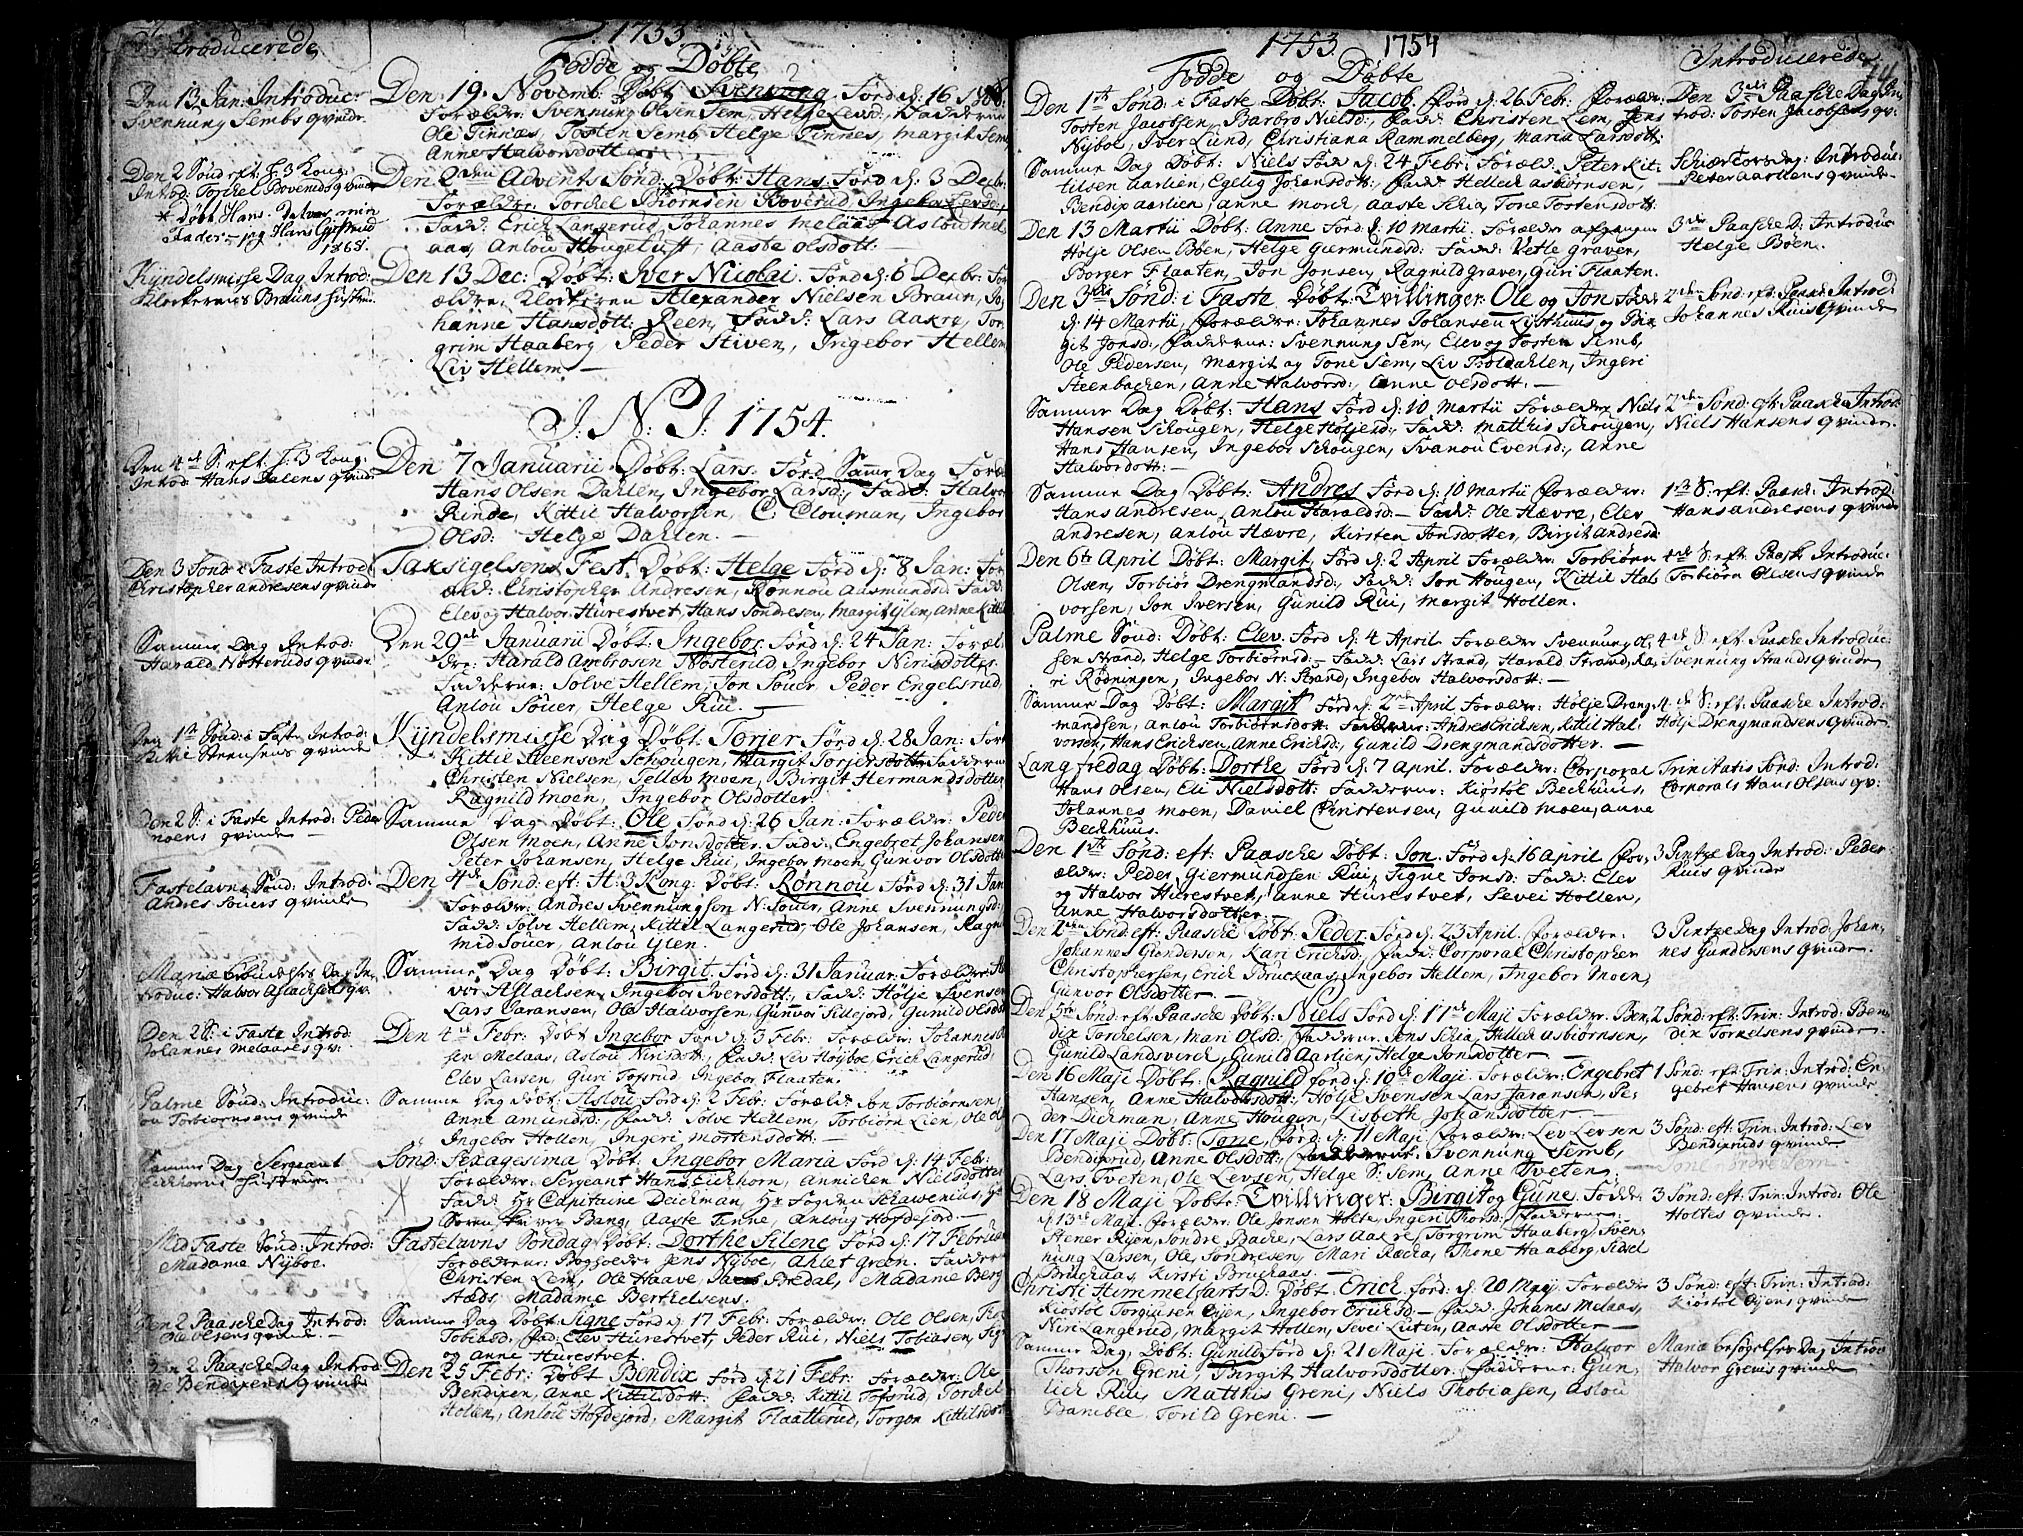 Introducerede
1753
Fødde og Døbte
Den 13 Jan: Introduc:
Svennung Sembs qvinde
Den 2 Sönd eft: H. 3 Kong:
Introd: Torckel Boveruds qvinde
* Döbt Hans. Det var min
Fader
1868.
Kyndelsmisse Dag Introd:
Klockerens Brauns hustru
Den 4de S: eft: H: 3 Kong:
Introd: Hans Dalens qvinde
Den 3 Sönd i Faste Introd:
Christopher Andresens qvinde
Samme Dag Introd:
Harald Nösteruds qvinde
Den 1ste Sönd: i Faste Introd:
Kittil Steensens qvinde
Den 2 S: i Faste Introd: Peder
Moens qvinde
Fastelavns Sönd: Introd:
Andres Souers qvinde
Mariæ Dag In-
troduc: Halvor Aslachsens qv:
Den 2 S: i Faste Introd:
Johannes Melaaes qv:
Palme Sönd: Introduc:
Jon Torbiörnsens qvinde
Samme Dag Sergeant
Eichhorns hustrue
Mid Faste Sönd: Introd:
Madame Nyboe.
Den 2 Paasche Dag Introd:
Ole Olsens qvinde
Den 2 Paasche Dag Introd:
Ole Bendixens qvinde
Den 19 Novemb: Döbt Svennung Förd d: 16
Forældre: Svennung Olsen Sem, Helge Levsd:, Fadderne
Ole Tinnæs, Tosten Semb, Helge Tinnes, Margit Sem
Anne Halvorsdotter
Den 2den Advents Sönd: Döbt: Hans Förd d: 3 Decbr:
Forældre: Torckel Biörnsen Boverud, Ingebor Levsd:,
Fadd: Erich Langerud, Johannes Melaas, Aslou Mel-
aas, Anlou Hougetuft, Aaste Olsdott:
Den 13 Dec: Döbt: Iver Nicolai Förd d: 6 Decbr: For-
ældre: Klockeren Alexander Nielsen Braun, Jo-
hanne Hansdott: Reen, Fadd: Lars Aakre, Tor-
grim Haaberg, Peder Stiven, Ingebor Hellem
Liv Hellem
J. N. J. 1754.
Den 7 Januarii Döbt: Lars Förd Samme Dag Foræld:
Hans Olsen Dahlen, Ingebor Larsd:, Fadd: Halvor
Rinde, Kittil Halvorsen, C: Clousman, Ingebor
Olsd: Helge Dahlen.
Taksigelsens Fest Döbt: Helge Förd d: 8 Jan: For-
æld: Christopher Andresen, Rönnou Aasmundsd: Fadd:
Elev og Halvor Hurestvet, Hans Sondresen, Margit Ylen, Anne Kittils
Den 29de Januarii Döbt: Ingebor Förd d: 24 Jan: Foræl-
dre: Harald Ambrosen Nösterud, Ingebor Nirisdotter
Fadderne: Solve Hellem, Jon Souer, Peder Engelsrud,
Anlou Souer, Helge Rui.
Kyndelsmisse Dag Döbt: Torjer Förd d: 28 Jan: Foræl
Kittil Steensen Schougen, Margit Torjersdotter Fadderne
Christen Nielsen, Tellev Moen, Birgit Hermandsdotter
Ragnild Moen, Ingebor Olsdotter
Samme Dag Döbt: Ole Förd d: 26 Jan: Forældr: Peder
Olsen Moen, Anne Jonsdotter. Fadd: Engebret Johansen
Peter Johansen, Helge Rui, Ingebor Moen, Gunvor Olsdott:
Den 4de Sönd: eft: H: 3 Kong: Döbt: Rönnou Förd d: 31 Jan
Forældre: Andres Svennungsen N: Souer, Anne Svennungsd:
Fadd: Solve Hellem, Kittil Langerud, Ole Johansen, Ragn-
mid Souer, Anlou Ylen.
Samme Dag Döbt: Birgit Förd d: 31 Januar: Forældre: Hal-
vor Aslachsen, Ingebor Iversdott:, Fadd: Höljer Svensen
Lars Jaransen, Ole Halvorsen, Gunvor Sillejord, Gunild Olsd
Den 4de Febr: Döbt Ingebor Förd d: 3 Febr: Forældr: Johannes
sen Melaas, Aslou Nirisdott: Fadd: Lev Höyboe, Erich Langerud,
Elev Larsen, Guri Tofsrud, Ingebor Flaaten.
Samme Dag Döbt: Aslou Förd d: 2 Febr: Foræld: Jon Torbiörnsen,
Anne Amundsd: Fadd: Solve Hellem, Torbiörn Lien, Ole
Ingebor Hollen, Ingeri Mortensdott:
Sönd: Sexagesima Döbt: Ingebor Maria Förd d: 14 Febr:
Forældre: Sergeant Hans Eichhorn, Annichen Nielsdotter
Fadd: Hr Capitaine Deichman, Hr Fogden Schavenius, Hr
Soren Bang, Aaste Tinne, Anloug Hofdejord
Fastelavns Söndag Döbt: Dorthe Silene Förd d: 17 Februar
Forældrene: Bogholder Jens Nyboe, Ahlet Green. Fadder:
Christen Lem, Ole Haave, Jens Aredal, Madame Berg
stæds Madame Berthelsens.
Samme Dag Döbt: Signe Förd d: 17 Febr: Forældr: Ole Olsen,
Tobiasd: Fad: Elev Hurestvet, Peder Rui, Niels Tobiasen, Sign
og Anne Hurestvet
Den 25 Febr: Döbt Bendix Förd d: 21 Febr: Forældre: Ole
Bendixen, Anne Kittilsdott: Fadd: Kittil Tofsrud, Torckel
Hollen, Anlou Hofdejord, Margit Flaatterud, Torgon Kittilsdott
1753 1754
Fødde og Døbte
Introducerede
74
Den 1ste Sönd: i Faste Döbt: Jacob Förd d: 26 Febr: Forældr:
Tosten Jacobsen, Barbro Nielsd: Fadd: Christen Lem, Jens
Nyboe, Iver Lund, Christiana Rammelberg, Maria Larsdott:
Samme Dag Döbt: Niels Född d: 24 Febr: Foræld: Peter Kit-
tilsen Aarlien, Egelig Johansdott: Fadd: Hellech Asbiörnsen,
Bendix Aarlien, Anne Morck, Aaste Schia, Tone Tostensdott:
Den 13 Martii Döbt: Anne Förd d: 10 Martii. Forældre Afgangen
Hölje Olsen Böen, Helge Giermundsd: Fadd: Vetle Graver,
Borger Flaaten, Jon Jonsen, Ragnild Graver, Guri Flaaten.
Den 3die Sönd: i Faste Döbt: Tvillinger Ole og Jon Född
d: 14 Martii, Forældre: Johannes Johansen Listhuus og Bir-
git Jonsd:, Fadderne: Svennung Sem, Elev og Tosten Semb,
Ole Pedersen, Margit og Tone Sem, Liv Troldahlen, Ingeri
Steenbachen, Anne Halvorsd:, Anne Olsdott:
Samme Dag Döbt: Hans Förd d: 10 Martii Forældre Niels
Hansen Schougen, Helge Höljesd:, Fadd: Matthis Schougen,
Hans Hansen, Ingebor Schougen, Svanou Evensd:, Anne
Halvorsdott:
Samme Dag Döbt: Andres Förd d: 10 Martii Forældre:
Hans Andresen, Anlou Haraldsd: Fadd: Ole Hævre, Elev
Andresen, Anlou Hævre, Kirsten Jonsdotter, Birgit Andresd
Den 6te April Döbt: Margit, Förd d: 2 April Forældre Torbiörn
Olsen, Torbiör Drengmandsd:, Fadd: Jon Hougen, Kittil Hal-
vorsen, Jon Iversen, Gunild Rui, Margit Hollen.
Palme Sönd: Döbt: Elev Förd d: 4 April Forældre Svennung Ol-
sen Strand, Helge Torbiörnsd: Fadd: Lars Strand, Harald Strand, Ka-
ri Rödningen, Ingebor N: Strand, Ingebor Halvorsdott:
Samme Dag Döbt: Margit Förd d: 2den April Forældre: Hölje Dreng-
mandsen, Anlou Torbiörnsdott: Fadderne: Andres Erichsen, Kittil Hal-
vorsen, Hans Erichsen, Anne Erichsd:, Gunild Drengmandsdotter.
Lang Fredag Döbt: Dorthe Förd d: 7 April. Forældre: Corporal
Hans Olsen, Eli Nielsdott: Fadderne: Kiöstol Beckhuus,
Johannes Moen, Daniel Christensen, Gunild Moen, Anne
Beckhuus.
Den 1ste Sönd: eft: Paasche Döbt: Jon Förd d: 16 April For-
ældre: Peder Giermundsen Rui, Signe Jonsd: Fadd: Elev
og Halvor Hurestvet, Anne Hurestvet, Sevei Hollen,
Anne Halvorsdotter.
Den 2den Sönd: eft: Paasche Döbt: Peder Förd d: 23 April Forældre:
Johannes Gundersen, Kari Erichsd:, Fadd: Corporal Christopher
Christophersen, Erich Bruckaas, Ingebor Hellem, Ingebor Moen,
Gunvor Olsdotter.
Den 5te Sönd: eft: Paasche Döbt: Niels Förd d: 11de Maji Forældre: Ben-
dix Torckelsen, Mari Olsd: Fadderne: Jens Schia, Hellech Asbiörnsen,
Gunild Landsverch, Gunild Aarlien, Helge Jonsdotter
Den 16 Maji Döbt: Ragnild Förd d: 10de Maji. Forældre: Engebret
Hansen, Anne Halvorsdott: Hölje Svensen Lars Jaransen, Pe-
der Dickman, Anne Hougen, Lisbeth Johansdotter
Den 17 Maji Döbt: Tone, Förd d: 11 Maji Forældre: Lev Levsen
Bendixrud, Anne Olsdott: Fadderne: Svennung Semb,
Lars Tveten, Ole Levsen, Helge S: Sem, Anne Tveten.
Den 18 Maji Döbt: Tvillinger: Birgit og Gune Födde
d: 13de Maji. Forældre: Ole Jonsen Holte, Ingeri Thorsd: Fadderne:
Stener Rijen, Sondre Bache, Lars Aakre, Torgrim Haaberg, Sven-
nung Larsen, Ole Sondresen, Mari Backa, Thone Haaberg, Sidsel
Bruckaas, Kirsti Bruckaas.
Christi Himmelfartsd: Döbt: Erich Förd d: 20 Maij Forældre
Kiöstol Torgiusen Oijen, Ingebor Erichsd: Fadd: Johannes Melaas,
Niri Langerud, Margit Hollen, Sevei Luten, Aaste Olsdotter
Samme Dag, Döbt: Gunild Förd d: 21 Maji. Forældre: Halvor
Thorsen Greni, Birgit Halvorsdotter: Fadderne: Gun-
lich Rui, Matthis Greni, Niels Thobiasen, Aslou
Bamble, Torild Greni.
Den 3die Paasche Dag In-
trod: Tosten Jacobsens qv:
Schiærtorsdag: Introduc:
Peter Aarliens qvinde
3die Paasche D: Introduc:
Helge Böen.
2den Sönd: eft: Paasche Introd
Johannes Ruis qvinde
2den Sönd: eft: Paasche Introd:
Niels Hansens qvinde.
1ste S: eft: Paasch: Introd:
Hans Andresens qvinde
4de S: eft: Paasche Introduc:
Torbiörn Olsens qvinde
4de S: eft: Paasche Introduc:
Svennung Strands qvinde
4de S: eft: Paasche Introd:
Hölje Drengmandsens qvinde
Trinitatis Sönd: Introd:
Corporals Hans Olsens qv:
3 Pintze Dag Introd: Peder
Ruis qvinde
3 Pintze Dag Introd: Johan-
nes Gundersens qvinde.
2 Sönd: eft: Trin: Introd: Ben-
dix Torkelsens qvinde.
1 Sönd: eft: Trin: Introd: En-
gebret Hansens qvinde
3 Sönd: eft: Trin: Introd: Lev
Bendixruds qvinde
3 Sönd: eft: Trin: Introd: Ole
Holtes qvinde.
3 Sönd: eft: Trin: Introd:
Kiöstol Oijens qvinde
Mariæ besögelses Dag Introd
Halvor Grenis qvinde